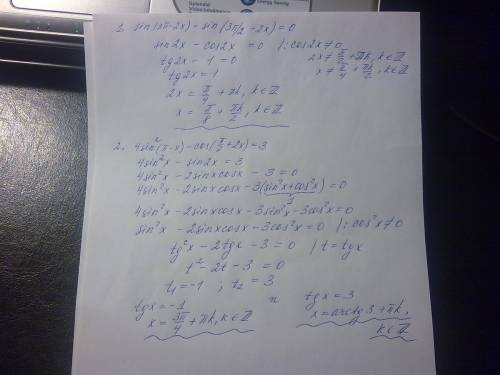 1. sin(3π-2x) - sin(3π/2 - 2x) = 0
sin2x - cos2x = 0 /: cos2x ≠ 0
tg2x - 1 = 0 2x ≠ π/2 + πk, k∈Z
tg2x = 1 x ≠ π/4 + πk/2, k∈Z
2x = π/4 + πk, k∈Z
x = π/8 + πk/2, k∈Z
2. 4sin²(π-x) - cos(π/2 + 2x) = 3
4sin²x - sin2x = 3
4sin²x - 2sinxcosx - 3 = 0
4sin²x - 2sinxcosx - 3(sin²x + cos²x) = 0
1
4sin²x - 2sinxcosx - 3sin²x - 3cos²x = 0
sin²x - 2sinxcosx - 3cos²x = 0 /: cos²x ≠ 0
tg²x - 2tgx - 3 = 0 / t = tgx
t² - 2t - 3 = 0
t₁ = -1 ; t₂ = 3
tgx = -1 и tgx = 3
x = 3π/4 + πk, k∈Z x = arctg3 + πk,
k∈Z